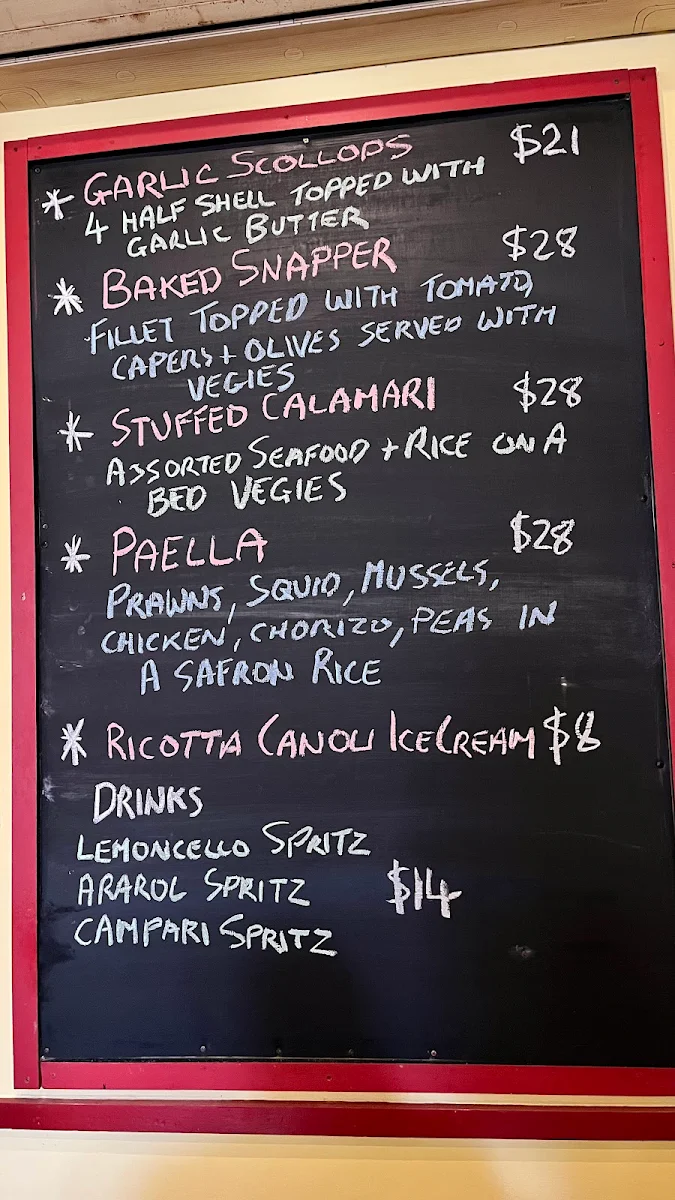 * GARLIC SCOLLOPS $21
4 HALF SHELL TOPPED WITH
GARLIC BUTTER
* BAKED SNAPPER $28
FILLET TOPPED WITH TOMATO,
CAPERS + OLIVES SERVED WITH
VEGIES
* STUFFED CALAMARI $28
ASSORTED SEAFOOD + RICE ON A
BED VEGIES
* PAELLA $28
PRAWNS, SQUID, MUSSELS,
CHICKEN, CHORIZO, PEAS IN
A SAFRON RICE
* RICOTTA CANOLI ICECREAM $8
DRINKS
LEMONCELLO SPRITZ
ARAROL SPRITZ $14
CAMPARI SPRITZ